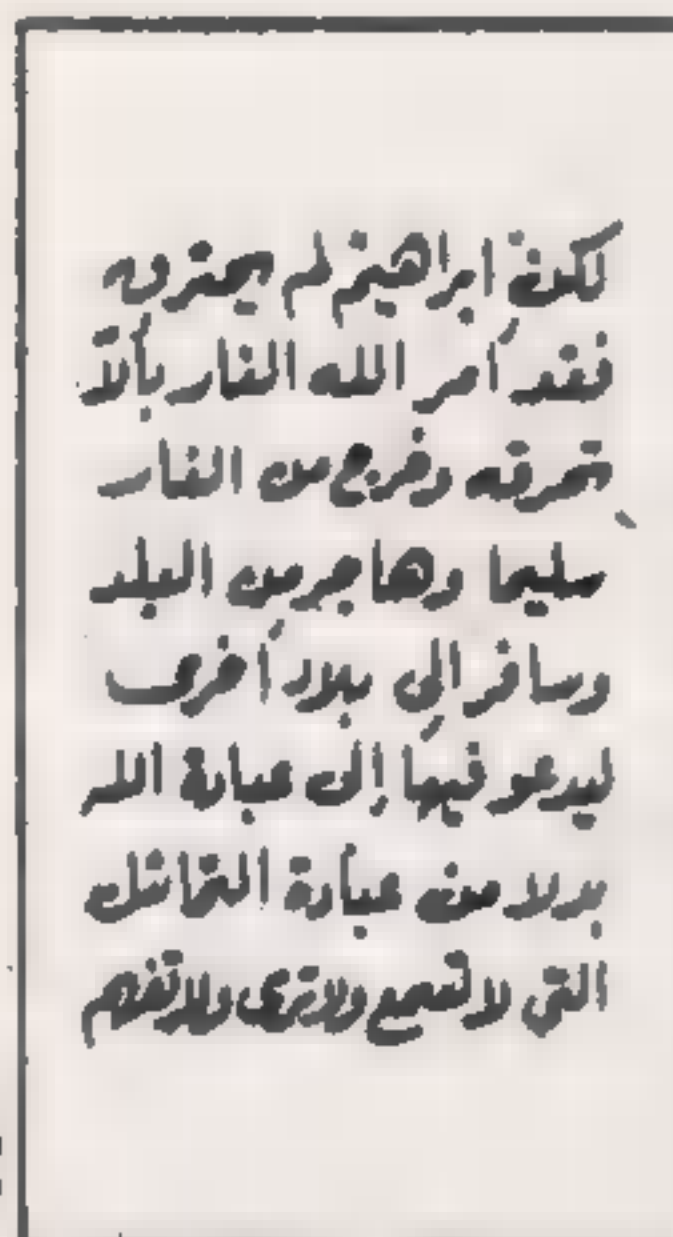 لكن ابراهيم لم يحترق
فقد أمر الله النار بألا
تحرقه وخرج من النار
سليما وهاجر من البلد
وسافر الى بلاد أخرى
ليدعو فيها إلى عبادة الله
بدلا من عبادة التماثيل
التي لا تسمع ولا ترى ولا تفهم